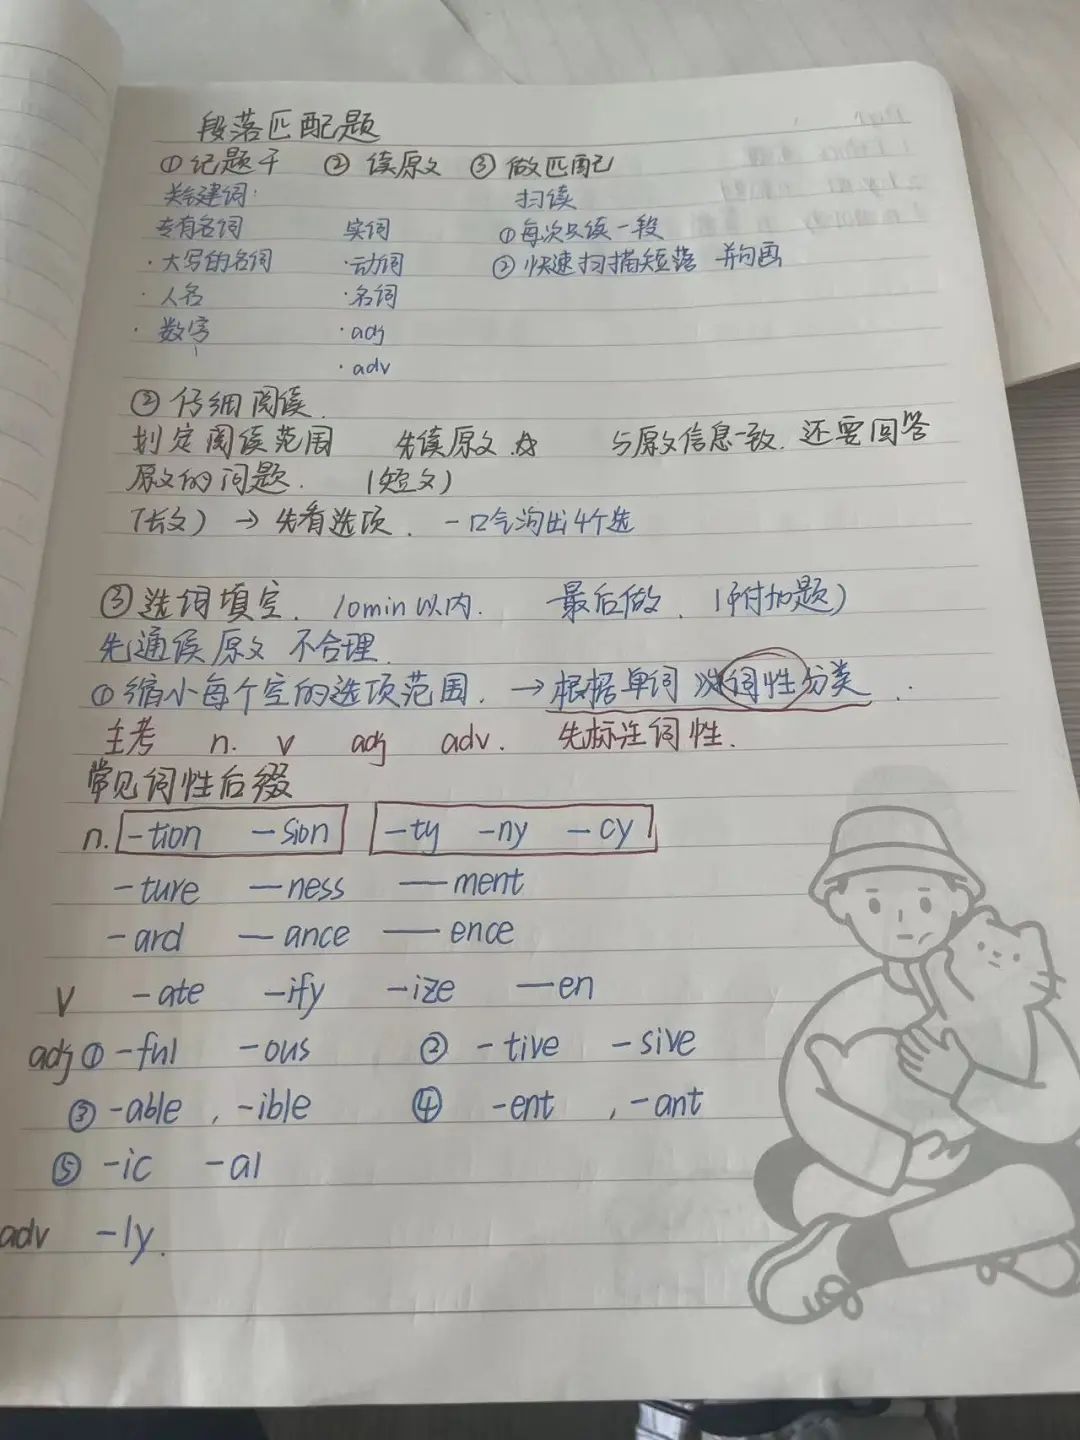 段落匹配题
① 记题干 ② 读原文 ③ 做匹配
关键词: 扫读
专有名词 实词 ① 每次只读一段
· 大写的名词 · 动词 ② 快速扫描短落 并勾画
· 人名 · 名词
· 数字 · adj
· adv
② 仔细阅读.
划定阅读范围 先读原文 与原文信息一致. 还要回答
原文的问题. (短文)
(长文) → 先看选项. 一口气沟出4个选
③ 选词填空. 10min以内. 最后做. (附加题)
先通读原文 不合理.
① 缩小每个空的选项范围. → 根据单词 词性分类
主考 n. v adj adv. 先标注词性.
常见词性后缀
n. -tion -sion -ty -ny -cy
-ture -ness -ment
-ard -ance -ence
V -ate -ify -ize -en
adj ① -ful -ous ② -tive -sive
③ -able , -ible ④ -ent , -ant
⑤ -ic -al
adv -ly.